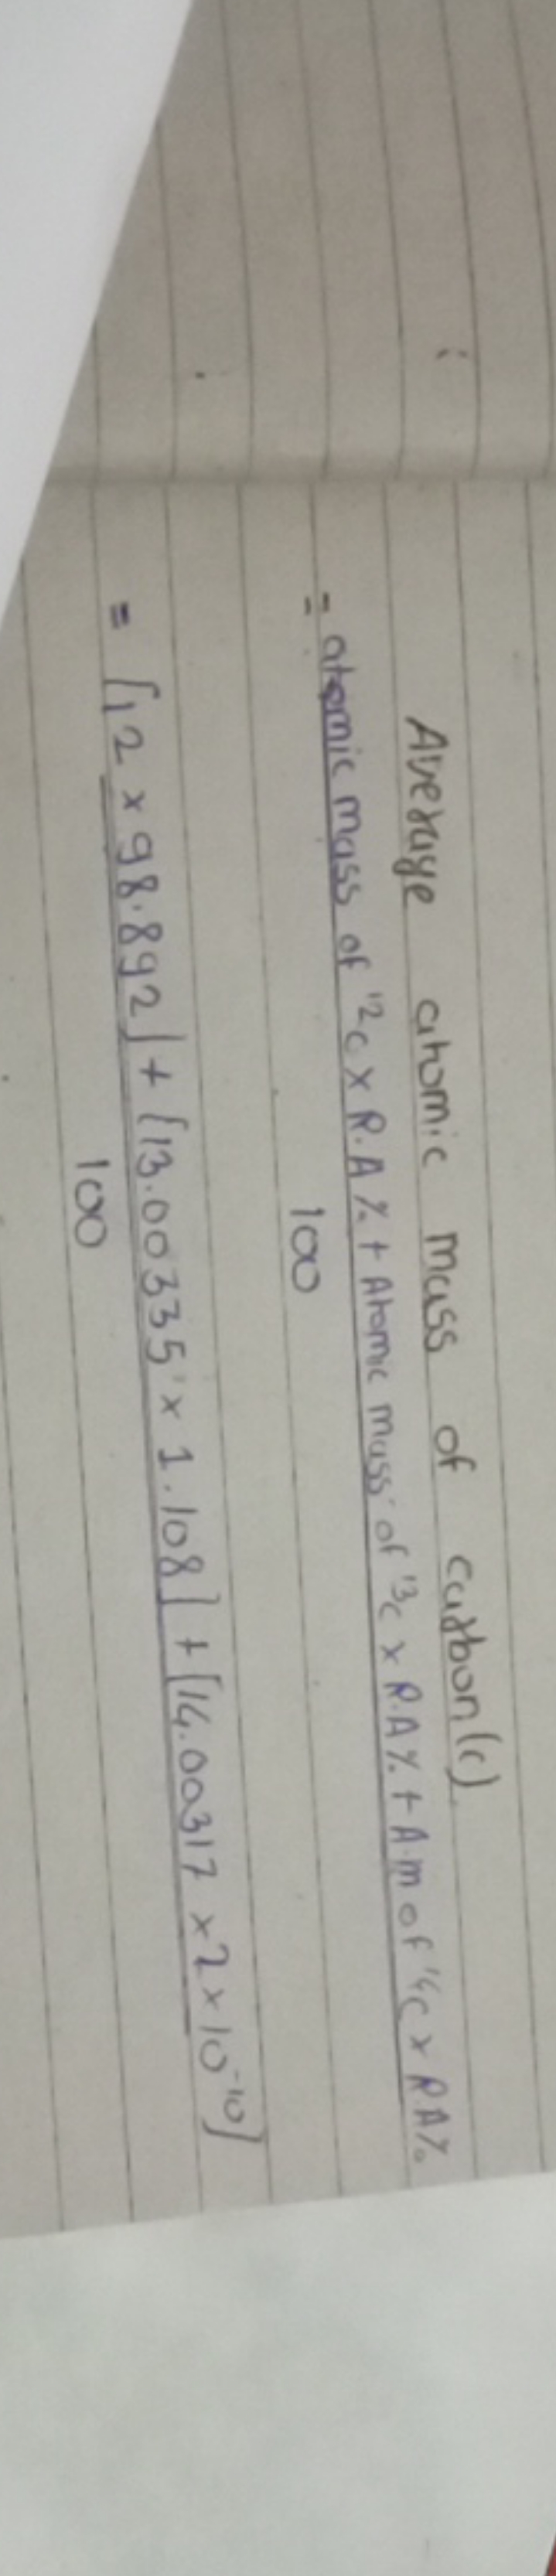 Average atomic mass of carbon(c)
= atomic mass of ¹²c x R.A % + Atomic mass of ¹³c x R.A % + A.m of ¹⁴c x R A %
100
= [12 x 98.892] + [13.00335 x 1.108] + [14.00317 x 2 x 10⁻¹⁰]
100